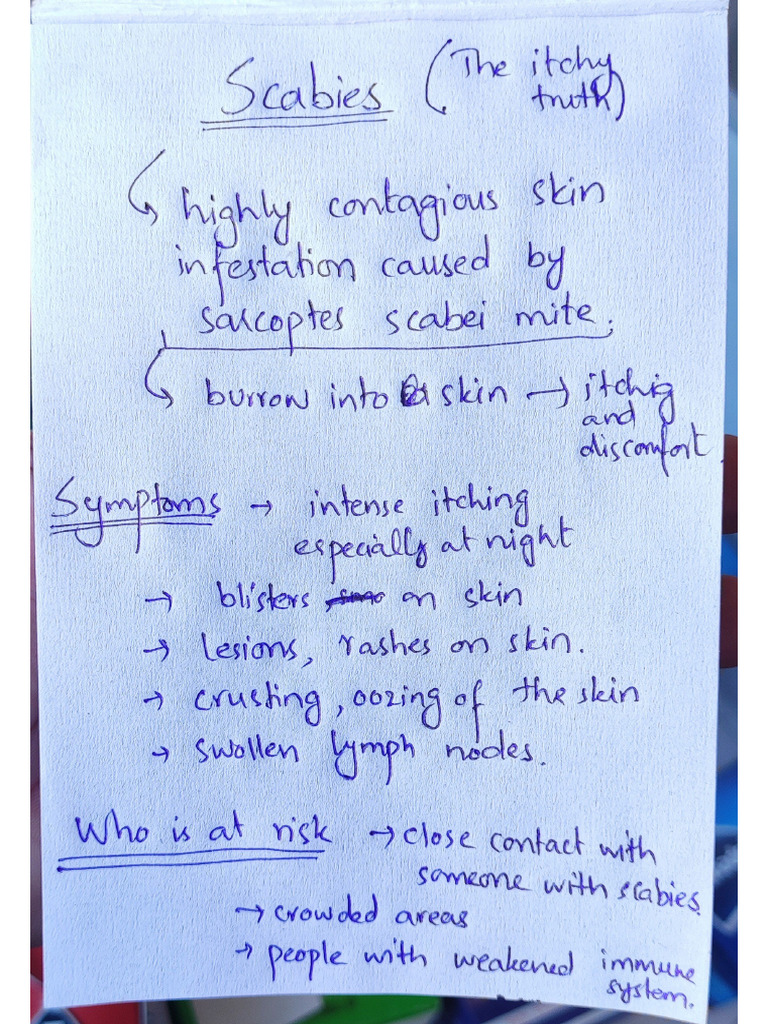 Scabies (The itchy
truth)
highly contagious skin
infestation caused by
sarcoptes scabei mite.
burrow into skin → itchig
and
discomfort.
Symptoms → intense itching
especially at night
→ blisters on skin
→ lesions, rashes on skin.
→ crusting, oozing of the skin
→ swollen lymph nodes.
Who is at risk → close contact with
someone with scabies.
→ crowded areas
→ people with weakened immune
system.